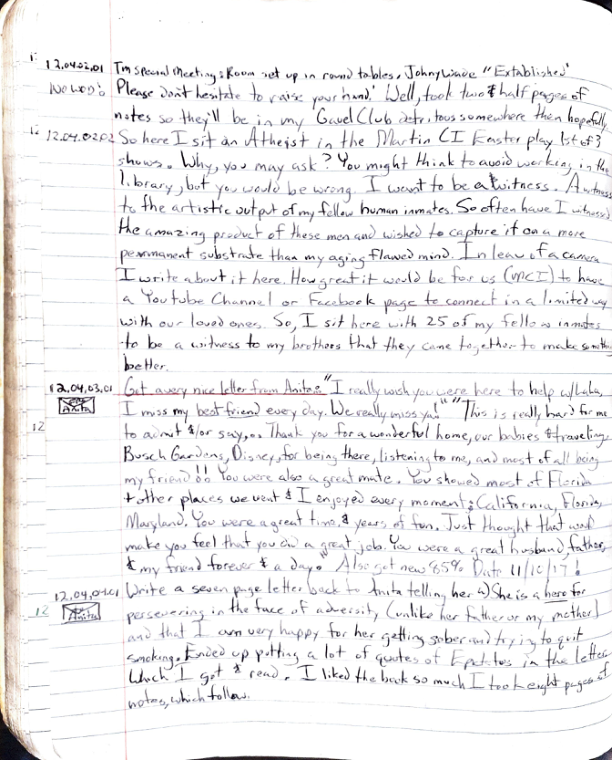 12.04.02.01 Tm special Meeting: Room set up in round tables. Johny Wade "Extablished"
No WOD's Please don't hesitate to raise your hand.' Well, took two & half pages of
notes so they'll be in my Gavel Club detritous somewhere then hopefully
12 12.04.02.02 So here I sit an Atheist in the Martin CI Easter play 1st of 3
shows. Why, you may ask? You might think to avoid working in the
library, but you would be wrong. I want to be a witness. A witness
to the artistic output of my fellow human inmates. So often have I witnessed
the amazing product of these men and wished to capture it on a more
permanent substrate than my aging flawed mind. In leau of a camera
I write about it here. How great it would be for us (MCI) to have
a YouTube Channel or Facebook page to connect in a limited way
with our loved ones. So, I sit here with 25 of my fellow inmates
to be a witness to my brothers that they came together to make something
better.
12.04.03.01 Got a very nice letter from Anita: "I really wish you were here to help w/Lala,
Anita I miss my best friend every day. We really miss ya!" "This is really hard for me
12 to admit &/or say,... Thank you for a wonderful home, our babies & traveling.
Busch Gardens, Disney, for being there, listening to me, and most of all being
my friend!! You were also a great mate. You showed most of Florida
& other places we went & I enjoyed every moment: California, Florida,
Maryland. You were a great time, & years of fun. Just thought that would
make you feel that you did a great job. You were a great husband, father,
& my friend forever & a day." Also got new 85% Date 11/10/17!
12.04.04.01 Write a seven page letter back to Anita telling her She is a hero for
12 Anita persevering in the face of adversity (unlike her father or my mother)
and that I am very happy for her getting sober and trying to quit
smoking. Ended up putting a lot of quotes of Epictitos in the letter
which I got & read. I liked the book so much I took eight pages of
notes, which follow.